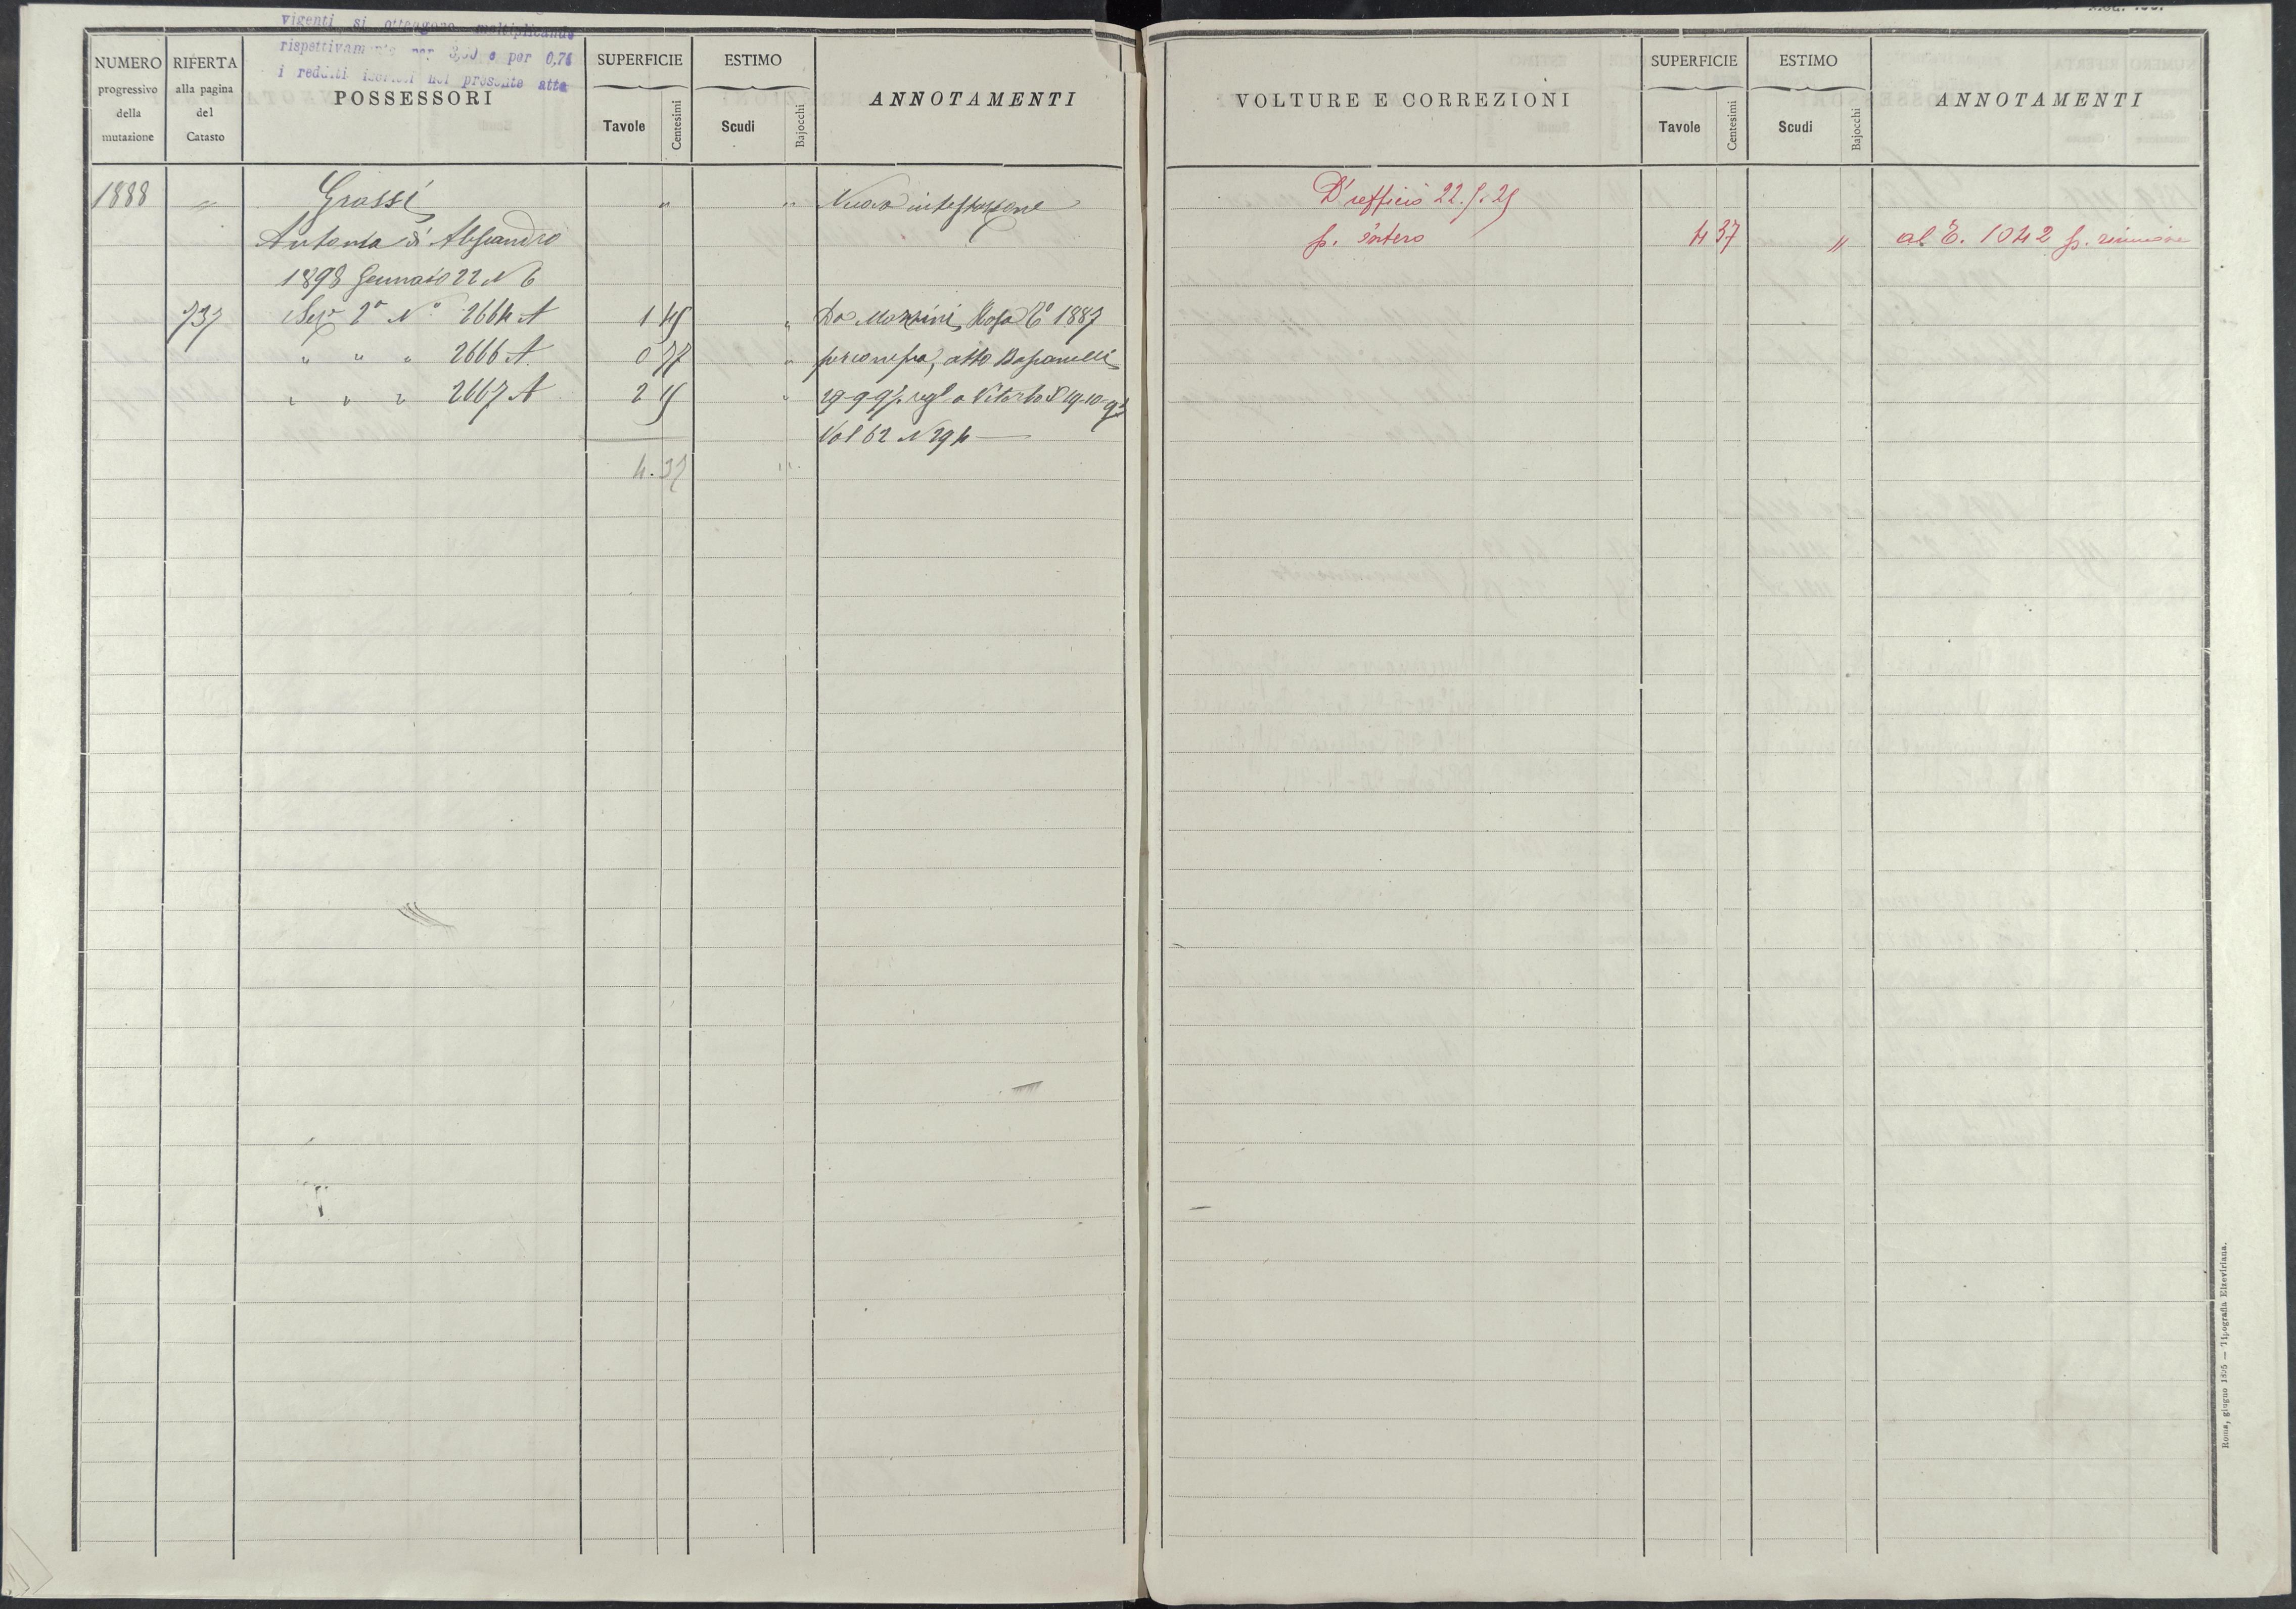 vigenti si ottengono moltiplicando
rispettivamente per 3,50 e per 0,74
i redditi iscritti nel presente atto
NUMERO progressivo della mutazione
RIFERTA alla pagina del Catasto
POSSESSORI
SUPERFICIE
Tavole
Centesimi
ESTIMO
Scudi
Bajocchi
ANNOTAMENTI
1888 " Grassi " " Nuova intestazione
Antonia di Alessandro
1898 Gennaio 22 N 6
737 Sez 2a No 2664 A 1 45 " Da Mozzini Rosa Eo 1887
" " " 2666 A 0 77 " per compra, atto
" " " 2667 A 2 15 " 29-9-97. regl a Viterbo 19-10-97
Vol 62 N 294
4.37 "
VOLTURE E CORREZIONI
SUPERFICIE
Tavole
Centesimi
ESTIMO
Scudi
Bajocchi
ANNOTAMENTI
D'ufficio 22.5.25
p. intero 4 37 " al E. 1042 p. riunione
Roma, giugno 1895 — Tipografia Elzeviriana.